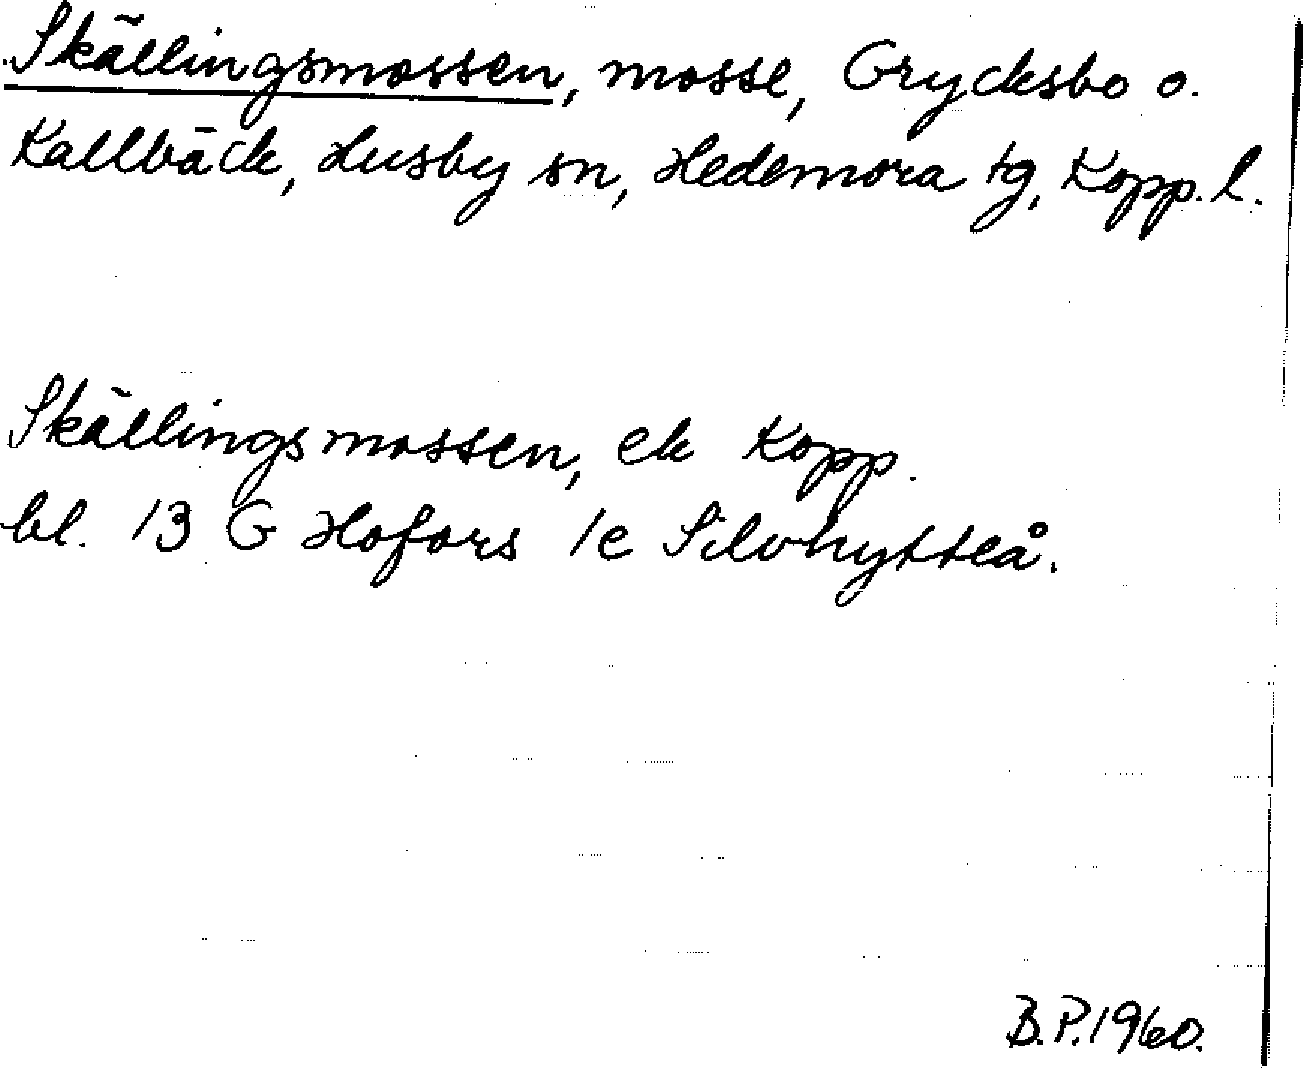 Skällingsmossen, mosse, Grycksbo o.
Kallbäck, Husby sn, Hedemora tg, Kopp. l.
Skällingsmossen, ek Kopp.
bl. 13 G Hofors 1e Silvhytteå.
B.P. 1960.